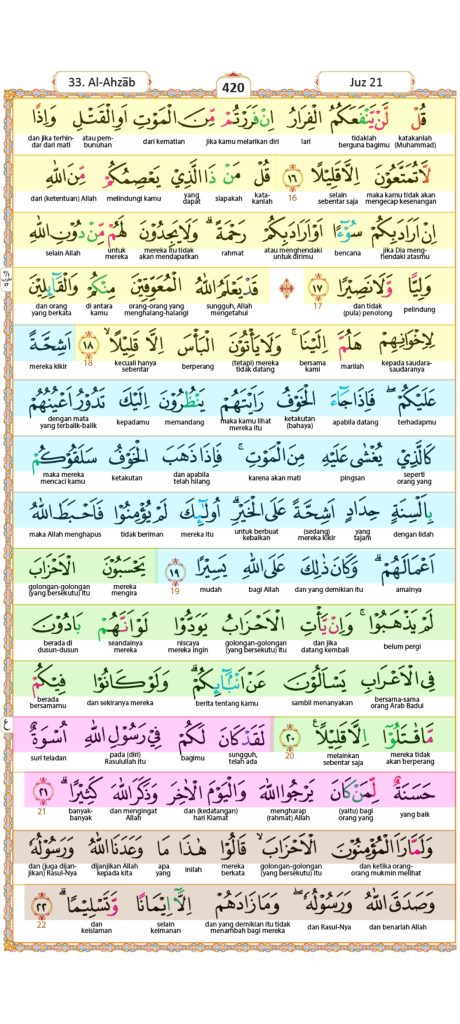 33. Al-Ahzāb 420 Juz 21
قُلْ لَّنْ يَّنْفَعَكُمُ الْفِرَارُ اِنْ فَرَرْتُمْ مِّنَ الْمَوْتِ اَوِ الْقَتْلِ وَاِذًا
katakanlah (Muhammad) tidaklah berguna bagimu lari jika kamu melarikan diri dari kematian atau pembunuhan dan jika terhindar dari mati
لَّا تُمَتَّعُوْنَ اِلَّا قَلِيْلًا ١٦ قُلْ مَنْ ذَا الَّذِيْ يَعْصِمُكُمْ مِّنَ اللّٰهِ
maka kamu tidak akan mengecap kesenangan selain sebentar saja 16 katakanlah siapakah yang dapat melindungi kamu dari (ketentuan) Allah
اِنْ اَرَادَ بِكُمْ سُوْۤءًا اَوْ اَرَادَ بِكُمْ رَحْمَةً ۗ وَلَا يَجِدُوْنَ لَهُمْ مِّنْ دُوْنِ اللّٰهِ
jika Dia menghendaki atasmu bencana atau menghendaki untuk dirimu rahmat mereka itu tidak akan mendapatkan untuk mereka selain Allah
وَلِيًّا وَّلَا نَصِيْرًا ١٧ ۞ قَدْ يَعْلَمُ اللّٰهُ الْمُعَوِّقِيْنَ مِنْكُمْ وَالْقَاۤىِٕلِيْنَ
pelindung dan tidak (pula) penolong 17 sungguh, Allah mengetahui orang-orang yang menghalang-halangi di antara kamu dan orang yang berkata
لِاِخْوَانِهِمْ هَلُمَّ اِلَيْنَا ۚ وَلَا يَأْتُوْنَ الْبَأْسَ اِلَّا قَلِيْلًا ۙ ١٨ اَشِحَّةً
kepada saudara-saudaranya marilah bersama kami (tetapi) mereka tidak datang berperang kecuali hanya sebentar 18 mereka kikir
عَلَيْكُمْ ۖ فَاِذَا جَاۤءَ الْخَوْفُ رَاَيْتَهُمْ يَنْظُرُوْنَ اِلَيْكَ تَدُوْرُ اَعْيُنُهُمْ
terhadapmu apabila datang ketakutan (bahaya) maka kamu lihat mereka itu memandang kepadamu dengan mata yang terbalik-balik
كَالَّذِيْ يُغْشٰى عَلَيْهِ مِنَ الْمَوْتِ ۚ فَاِذَا ذَهَبَ الْخَوْفُ سَلَقُوْكُمْ
seperti orang yang pingsan karena akan mati dan apabila telah hilang ketakutan maka mereka mencaci kamu
بِاَلْسِنَةٍ حِدَادٍ اَشِحَّةً عَلَى الْخَيْرِ ۗ اُولٰۤىِٕكَ لَمْ يُؤْمِنُوْا فَاَحْبَطَ اللّٰهُ
dengan lidah yang tajam (sedang) mereka kikir untuk berbuat kebaikan mereka itu tidak beriman maka Allah menghapus
اَعْمَالَهُمْ ۗ وَكَانَ ذٰلِكَ عَلَى اللّٰهِ يَسِيْرًا ١٩ يَحْسَبُوْنَ الْاَحْزَابَ
amalnya dan yang demikian itu bagi Allah mudah 19 mereka mengira golongan-golongan (yang bersekutu) itu
لَمْ يَذْهَبُوْا ۚ وَاِنْ يَّأْتِ الْاَحْزَابُ يَوَدُّوْا لَوْ اَنَّهُمْ بَادُوْنَ
belum pergi dan jika datang kembali golongan-golongan (yang bersekutu) itu niscaya mereka ingin seandainya mereka berada di dusun-dusun
فِى الْاَعْرَابِ يَسْاَلُوْنَ عَنْ اَنْۢبَاۤىِٕكُمْ ۗ وَلَوْ كَانُوْا فِيْكُمْ
bersama-sama orang Arab Badui sambil menanyakan berita tentang kamu dan sekiranya mereka berada bersamamu
مَّا قٰتَلُوْٓا اِلَّا قَلِيْلًا ࣖ ٢٠ لَقَدْ كَانَ لَكُمْ فِيْ رَسُوْلِ اللّٰهِ اُسْوَةٌ
mereka tidak akan berperang melainkan sebentar saja 20 sungguh, telah ada bagimu pada (diri) Rasulullah itu suri teladan
حَسَنَةٌ لِّمَنْ كَانَ يَرْجُوا اللّٰهَ وَالْيَوْمَ الْاٰخِرَ وَذَكَرَ اللّٰهَ كَثِيْرًا ۗ ٢١
yang baik (yaitu) bagi orang yang mengharap (rahmat) Allah dan (kedatangan) hari Kiamat dan mengingat Allah banyak-banyak 21
وَلَمَّا رَاَ الْمُؤْمِنُوْنَ الْاَحْزَابَ ۙ قَالُوْا هٰذَا مَا وَعَدَنَا اللّٰهُ وَرَسُوْلُهٗ
dan ketika orang-orang mukmin melihat golongan-golongan (yang bersekutu) itu mereka berkata inilah apa yang dijanjikan Allah kepada kita dan (juga dijanjikan) Rasul-Nya
وَصَدَقَ اللّٰهُ وَرَسُوْلُهٗ ۖ وَمَا زَادَهُمْ اِلَّآ اِيْمَانًا وَّتَسْلِيْمًا ۗ ٢٢
dan benarlah Allah dan Rasul-Nya dan yang demikian itu tidak menambah bagi mereka selain keimanan dan keislaman 22